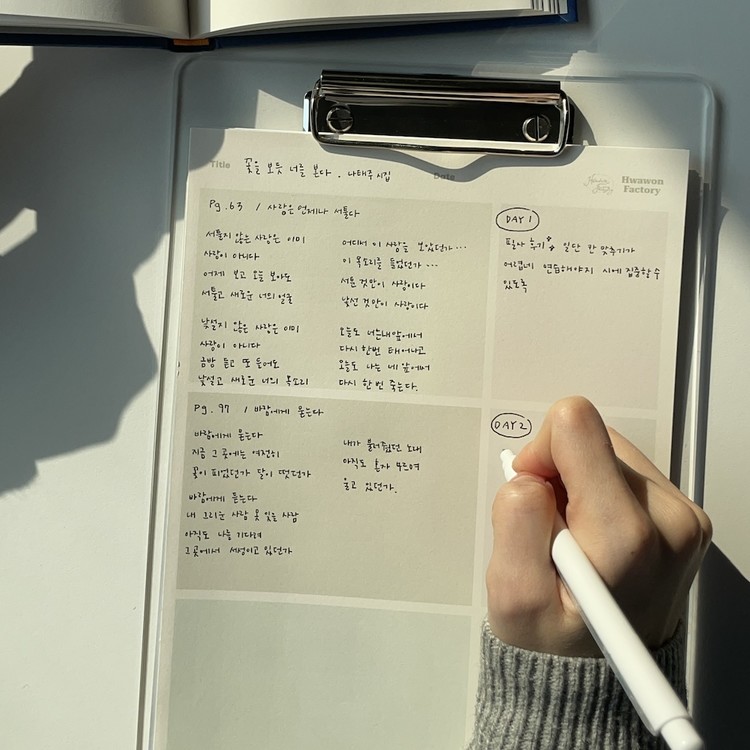 Title
꽃을 보듯 너를 본다. 나태주 시집
Date
Hwawon
Factory
Pg.63 / 사랑은 언제나 서툴다
서툴지 않은 사랑은 이미
사랑이 아니다
어제 보고 오늘 보아도
서툴고 새로운 너의 얼굴
낯설지 않은 사랑은 이미
사랑이 아니다
금방 듣고 또 들어도
낯설고 새로운 너의 목소리
어디서 이 사람을 보았던가...
이 목소리를 들었던가...
서툰 것만이 사랑이다
낯선 것만이 사랑이다
오늘도 너는 내 앞에서
다시 한번 태어나고
오늘도 나는 네 앞에서
다시 한번 죽는다.
DAY 1
필사 후기 일단 칸 맞추기가
어렵네 연습해야지 시에 집중할 수
있도록
Pg.97 / 바람에게 묻는다
바람에게 묻는다
지금 그곳에는 여전히
꽃이 피었던가 달이 떴던가
바람에게 묻는다
내 그리운 사람 못 잊을 사람
아직도 나를 기다려
그곳에서 서성이고 있던가
내가 불러줬던 노래
아직도 혼자 부르며
울고 있던가.
DAY 2